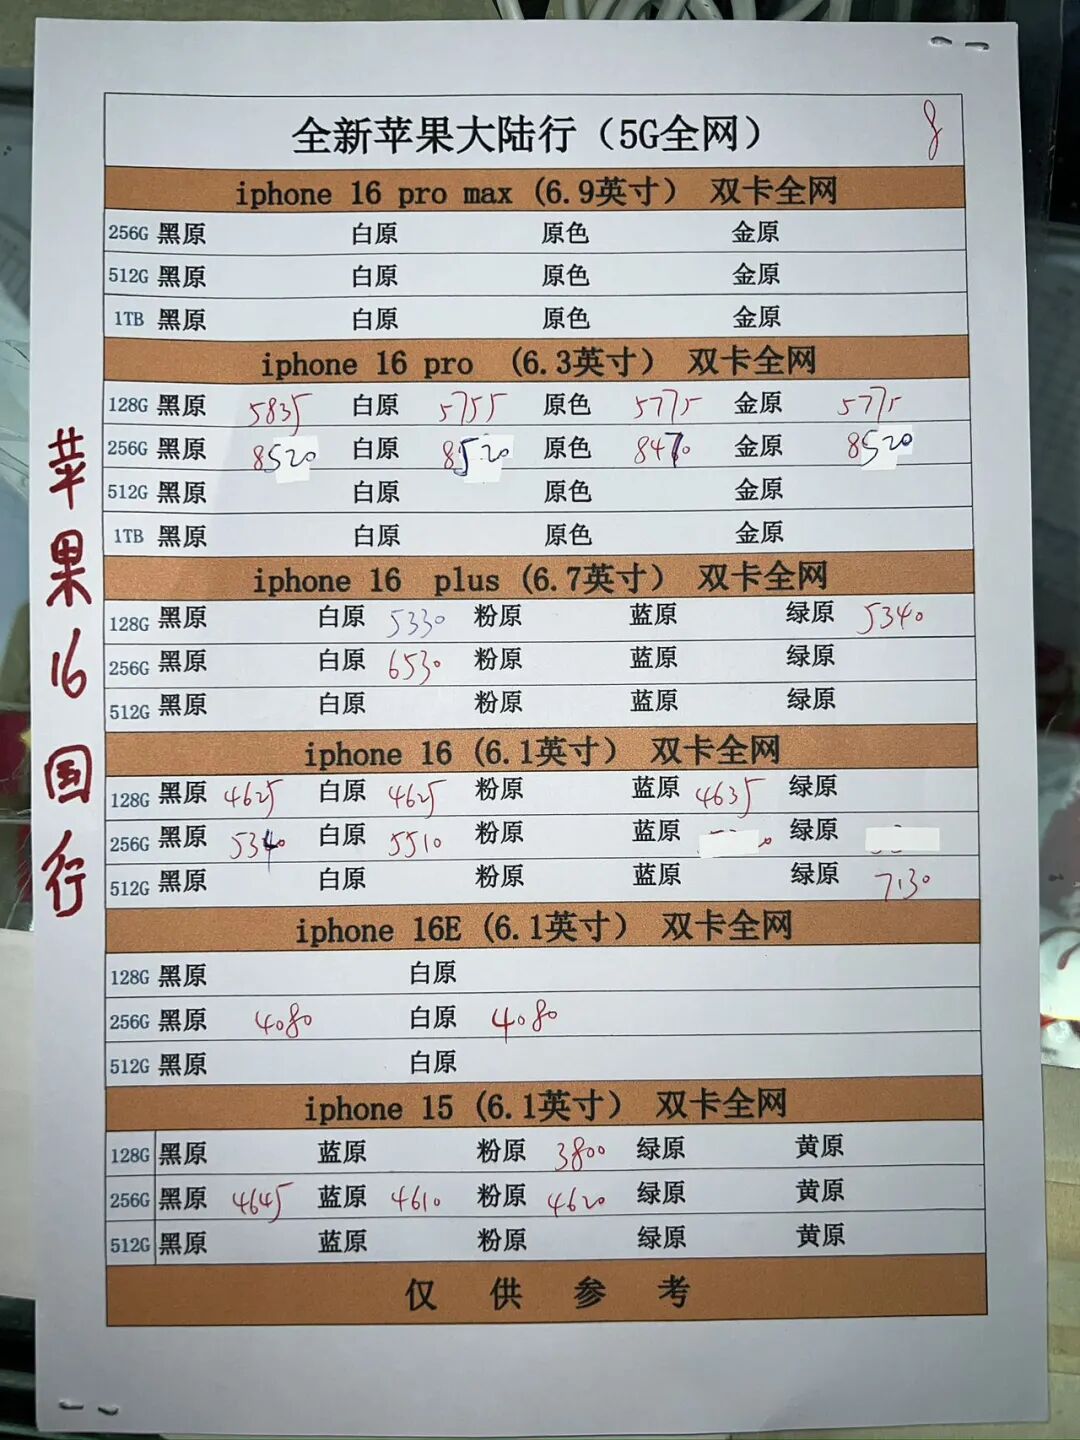 全新苹果大陆行（5G全网）
iphone 16 pro max (6.9英寸） 双卡全网
256G 黑原 白原 原色 金原
512G 黑原 白原 原色 金原
1TB 黑原 白原 原色 金原
iphone 16 pro （6.3英寸） 双卡全网
128G 黑原 5835 白原 5755 原色 5775 金原 5775
256G 黑原 8520 白原 8520 原色 8470 金原 8520
512G 黑原 白原 原色 金原
1TB 黑原 白原 原色 金原
iphone 16 plus (6.7英寸） 双卡全网
128G 黑原 白原 5330 粉原 蓝原 绿原 5340
256G 黑原 白原 6530 粉原 蓝原 绿原
512G 黑原 白原 粉原 蓝原 绿原
iphone 16 (6.1英寸） 双卡全网
128G 黑原 4625 白原 4625 粉原 蓝原 4635 绿原
256G 黑原 5340 白原 5510 粉原 蓝原 绿原
512G 黑原 白原 粉原 蓝原 绿原 7130
iphone 16E (6.1英寸） 双卡全网
128G 黑原 白原
256G 黑原 4080 白原 4080
512G 黑原 白原
iphone 15 (6.1英寸） 双卡全网
128G 黑原 蓝原 粉原 3800 绿原 黄原
256G 黑原 4645 蓝原 4610 粉原 4620 绿原 黄原
512G 黑原 蓝原 粉原 绿原 黄原
仅供参考
苹果16国行